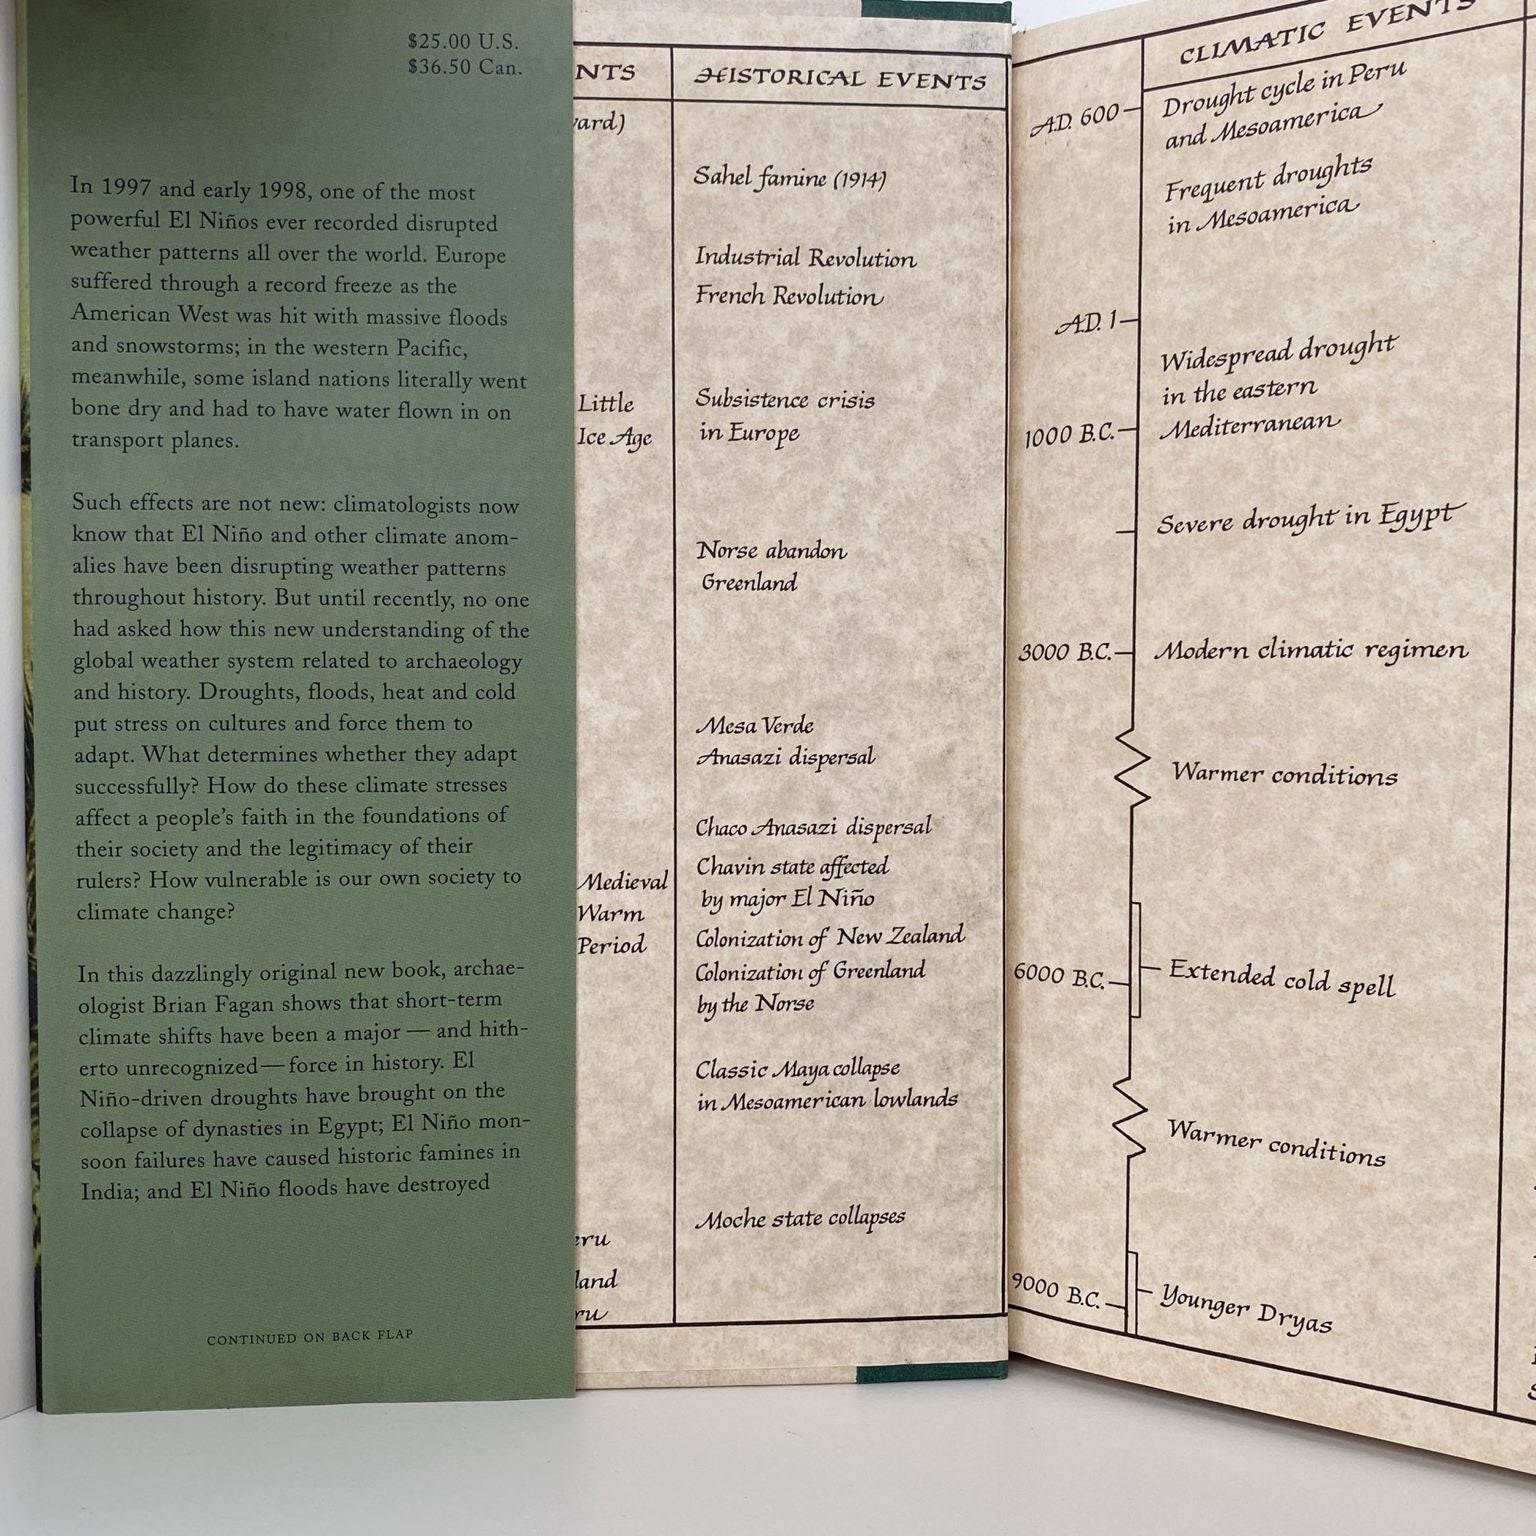 $25.00 U.S.
$36.50 Can.
In 1997 and early 1998, one of the most
powerful El Niños ever recorded disrupted
weather patterns all over the world. Europe
suffered through a record freeze as the
American West was hit with massive floods
and snowstorms; in the western Pacific,
meanwhile, some island nations literally went
bone dry and had to have water flown in on
transport planes.
Such effects are not new: climatologists now
know that El Niño and other climate anom-
alies have been disrupting weather patterns
throughout history. But until recently, no one
had asked how this new understanding of the
global weather system related to archaeology
and history. Droughts, floods, heat and cold
put stress on cultures and force them to
adapt. What determines whether they adapt
successfully? How do these climate stresses
affect a people's faith in the foundations of
their society and the legitimacy of their
rulers? How vulnerable is our own society to
climate change?
In this dazzlingly original new book, archae-
ologist Brian Fagan shows that short-term
climate shifts have been a major — and hith-
erto unrecognized — force in history. El
Niño-driven droughts have brought on the
collapse of dynasties in Egypt; El Niño mon-
soon failures have caused historic famines in
India; and El Niño floods have destroyed
CONTINUED ON BACK FLAP
NTS
ard)
Little
Ice Age
Medieval
Warm
Period
eru
land
ru
HISTORICAL EVENTS
Sahel famine (1914)
Industrial Revolution
French Revolution
Subsistence crisis
in Europe
Norse abandon
Greenland
Mesa Verde
Anasazi dispersal
Chaco Anasazi dispersal
Chavin state affected
by major El Niño
Colonization of New Zealand
Colonization of Greenland
by the Norse
Classic Maya collapse
in Mesoamerican lowlands
Moche state collapses
CLIMATIC EVENTS
A.D. 600
Drought cycle in Peru
and Mesoamerica
Frequent droughts
in Mesoamerica
A.D. 1
Widespread drought
in the eastern
1000 B.C. Mediterranean
Severe drought in Egypt
3000 B.C. Modern climatic regimen
Warmer conditions
6000 B.C. Extended cold spell
Warmer conditions
9000 B.C. Younger Dryas